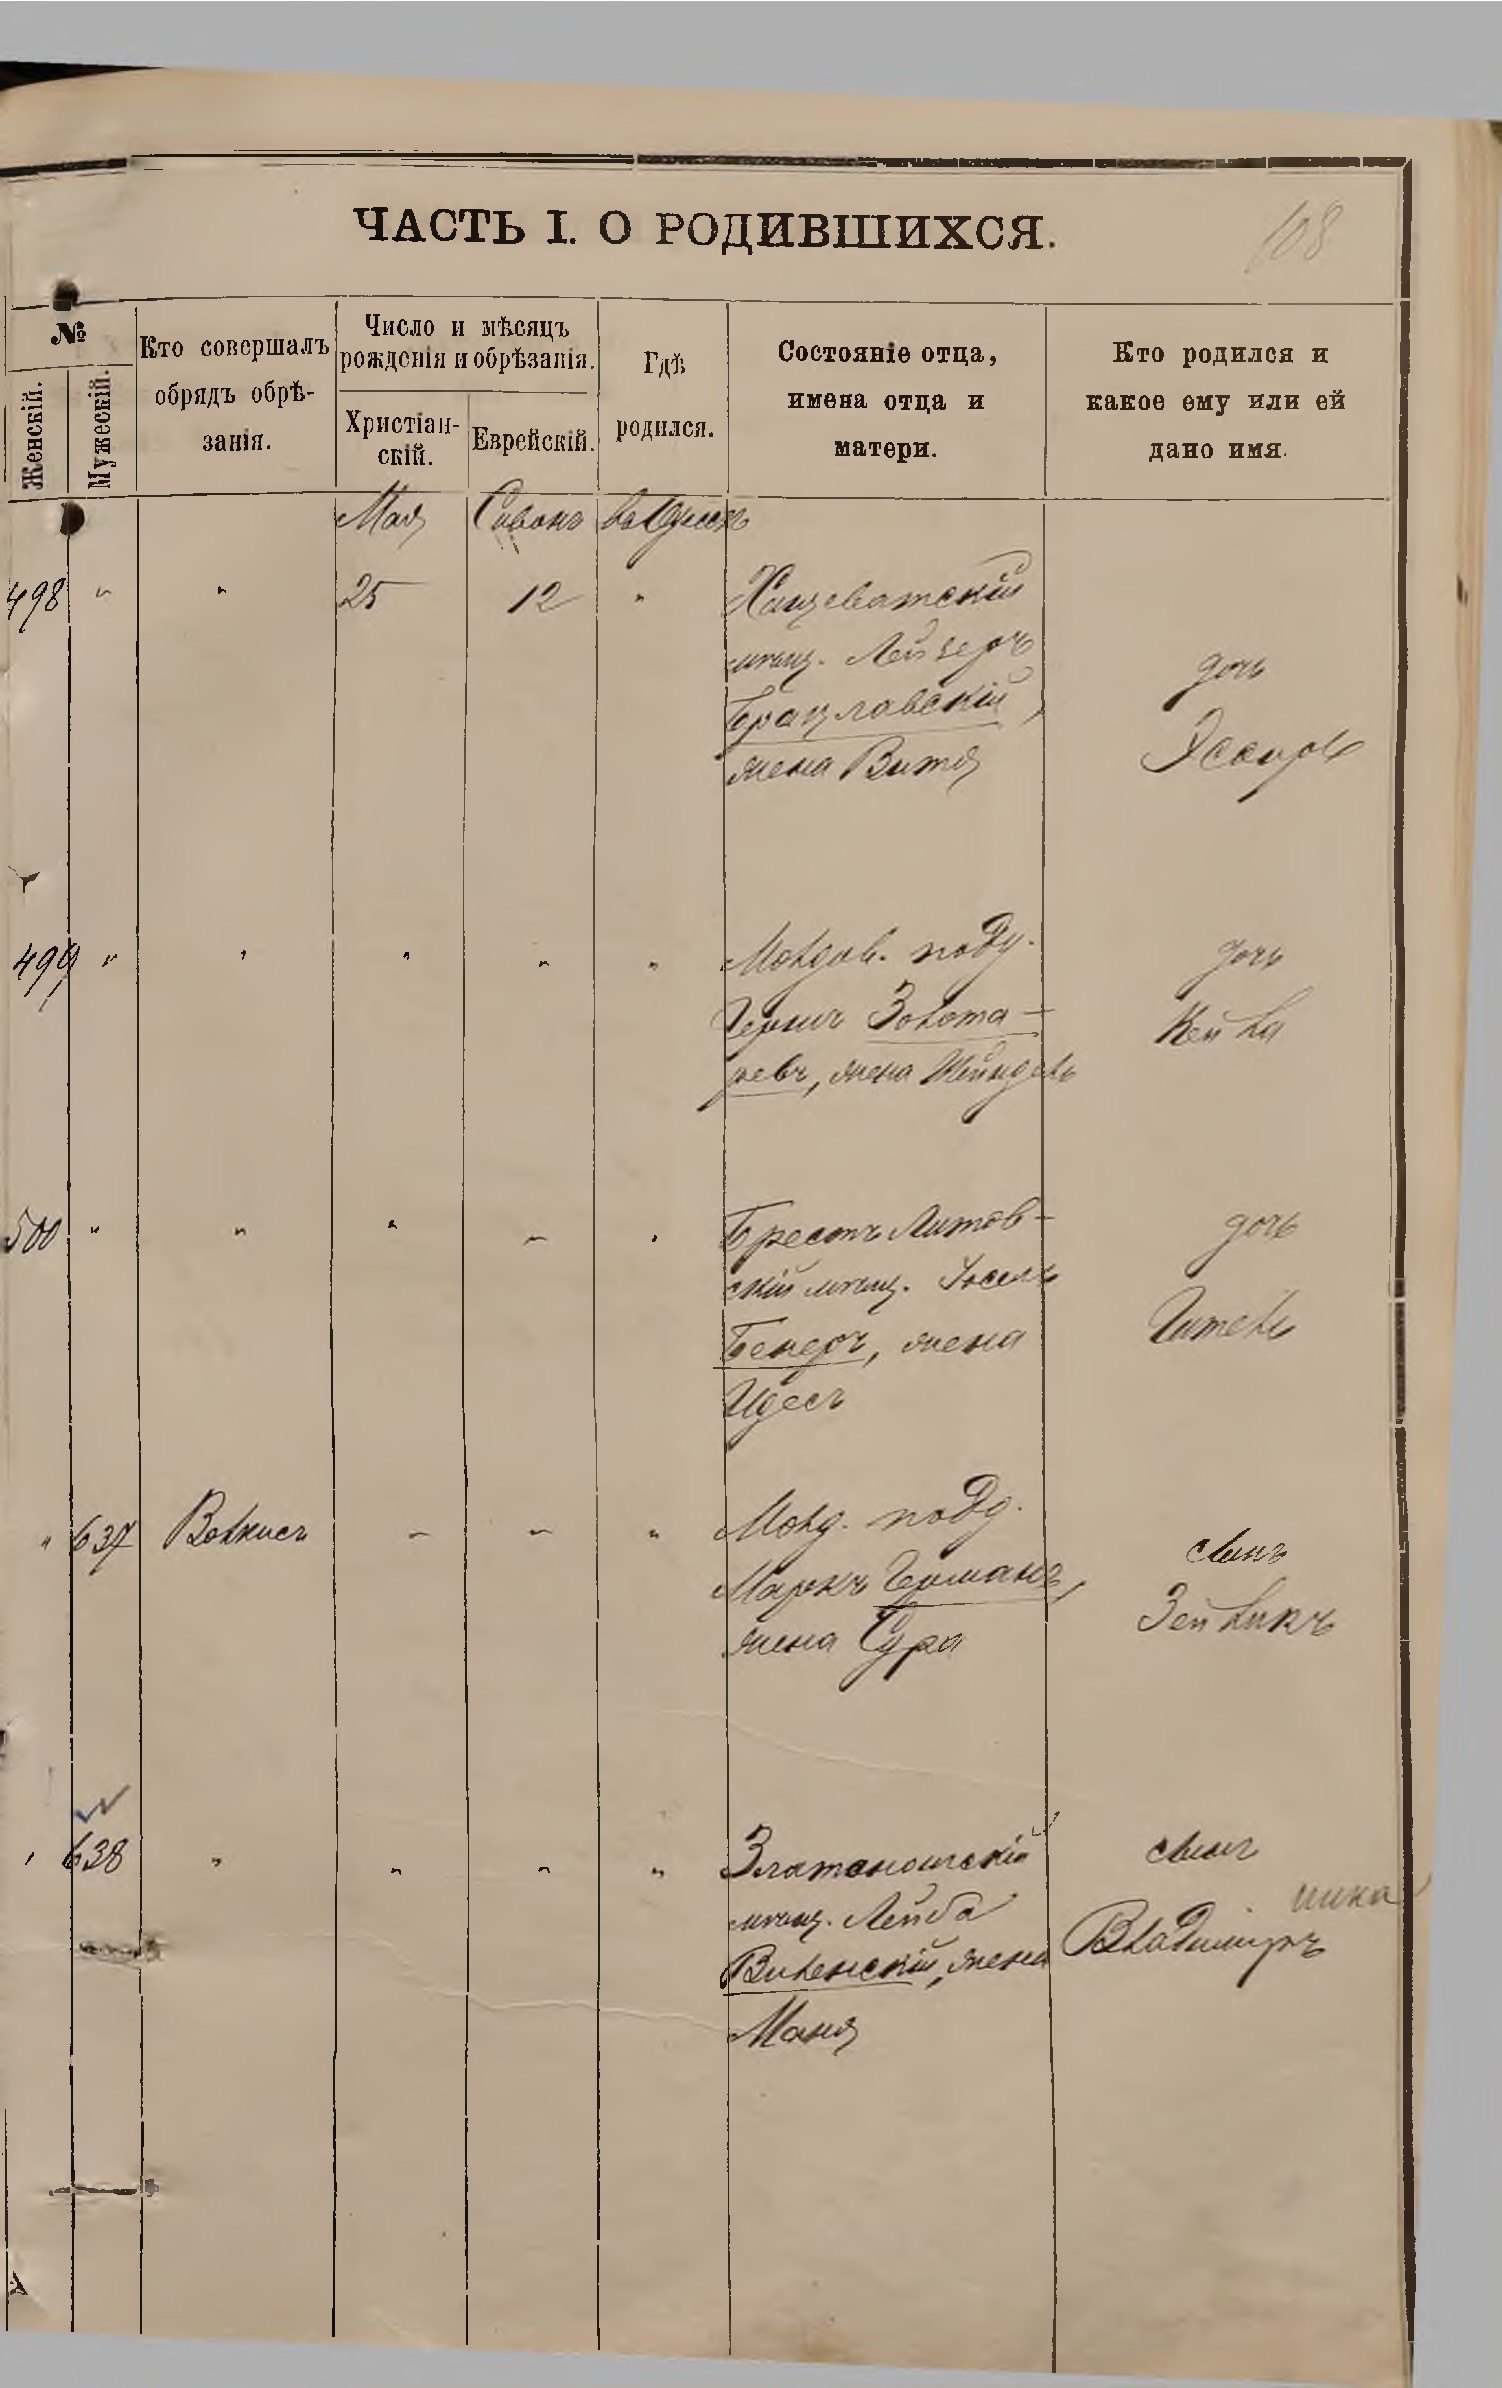 ЧАСТЬ I. О РОДИВШИХСЯ.
108
№
Женскій.
Мужескій.
Кто совершалъ
обрядъ обрѣ-
занія.
Число и мѣсяцъ
рожденія и обрѣзанія.
Христіан-
скій.
Еврейскій.
Гдѣ
родился.
Состояніе отца,
имена отца и
матери.
Кто родился и
какое ему или ей
дано имя.
Мая Сивонъ въ Одессѣ
498 " " 25 12 " Хащеватскій
мѣщ. Лейзеръ
Брацлавскій,
жена Витя
дочь
Эсѳирь
499 " " " " " Молдав. подд.
Гершъ Золота-
ревъ, жена Шейндель
дочь
Кейла
500 " " " " " Брестъ Литов-
скій мѣщ. Іосель
Бекеръ, жена
Идесъ
дочь
Гитель
" 637 Волкисъ " " " Молд. подд.
Маркъ Германъ,
жена Сура
сынъ
Зейликъ
" 638 " " " " Златоношскій
мѣщ. Лейба
Виленскій, жена
Маня
сынъ
Владимиръ